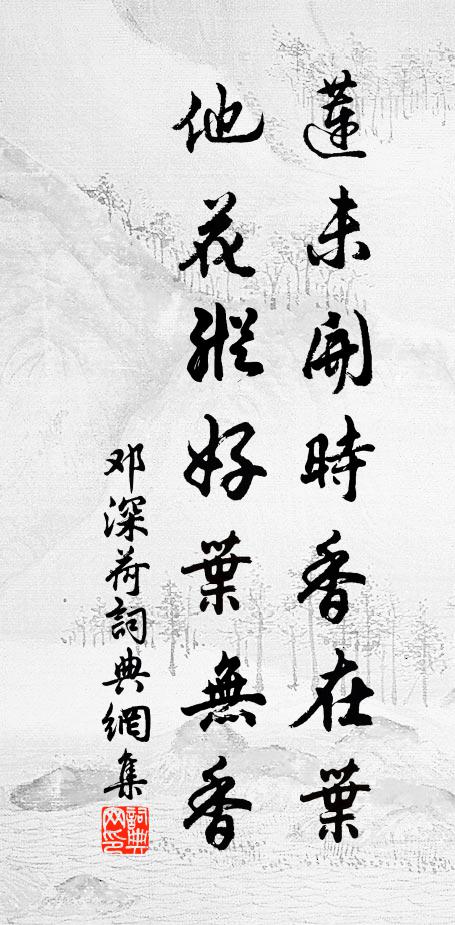 蓮未開時香在葉
他花縱好葉無香
邓深荷詞典網集
詞典
网印